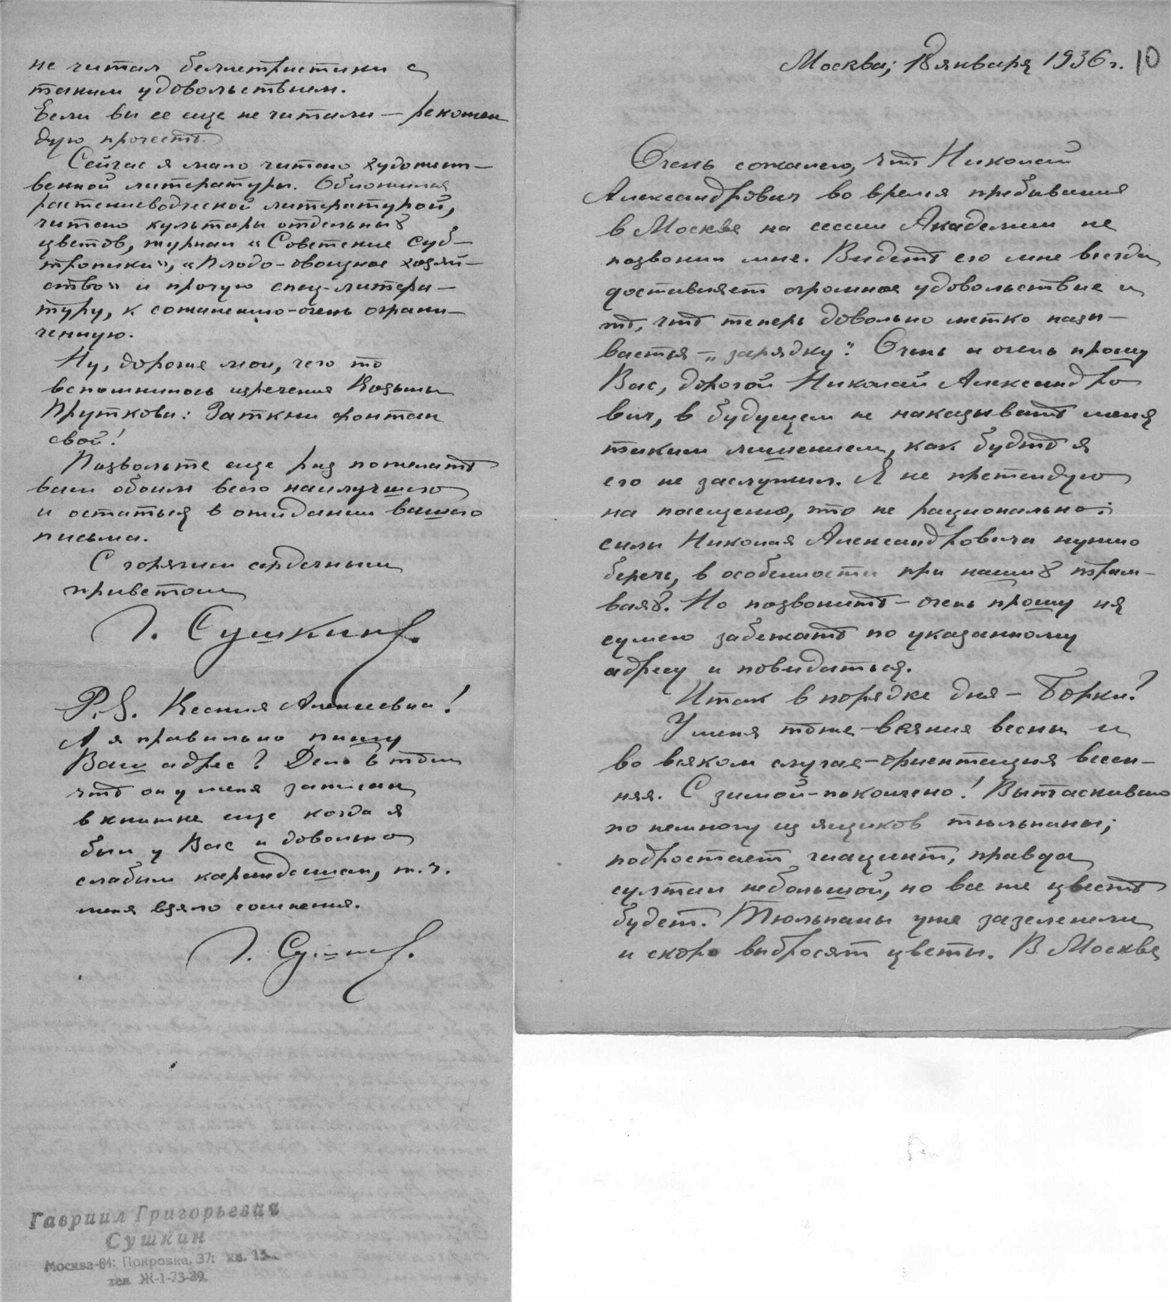 не читал беллетристики с
таким удовольствием.
Если вы ее еще не читали – рекомен
дую прочесть.
Сейчас я мало читаю художест-
венной литературы. Обложился
растениеводческой литературой,
читаю культуры отдельных
цветов, журнал "Советские Суб-
тропики", "Плодо-овощное хозяй-
ство" и прочую спец-литера-
туру, к сожалению-очень ограни-
ченную.
Ну, дорогие мои, чего то
вспомнилось изречение Козьмы
Пруткова: Заткни фонтан
свой!
Позвольте еще раз пожелать
вам обоим всего наилучшего
и остаться в ожидании вашего
письма.
С горячим сердечным
приветом
Г. Сушкин.
P.S. Ксения Алексеевна!
А я правильно пишу
Ваш адрес? Дело в том
что он у меня записан
в книжке еще когда я
был у Вас и довольно
слабым карандашом, т.ч.
меня взяло сомнение.
Г. Сушкин.
Гавриил Григорьевич
Сушкин
Москва-64: Покровка, 37; кв. 15
тел. Ж-1-73-39.
Москва; 18 января 1936 г. 10
Очень сожалею, что Николай
Александрович во время пребывания
в Москве на сессии Академии не
позвонил мне. Видеть его мне всегда
доставляет огромное удовольствие и
то, что теперь довольно метко назы-
вается – "зарядку". Очень и очень прошу
Вас, дорогой Николай Александро
вич, в будущем не наказывать меня
таким лишением, как будто я
его не заслужил. Я не претендую
на посещение, это не рационально:
силы Николая Александровича нужно
беречь, в особенности при наших трам-
ваях. Но позвонить – очень прошу и я
сумею забежать по указанному
адресу и повидаться.
Итак в порядке дня – Борки?
У меня тоже – веяния весны и
во всяком случае – ориентация весен-
няя. С зимой – покончено! Вытаскиваю
по немногу из ящиков тюльпаны;
подростает гиацинт, правда
султан небольшой, но все же цвести
будет. Тюльпаны уже зазеленели
и скоро выбросят цветы. В Москве